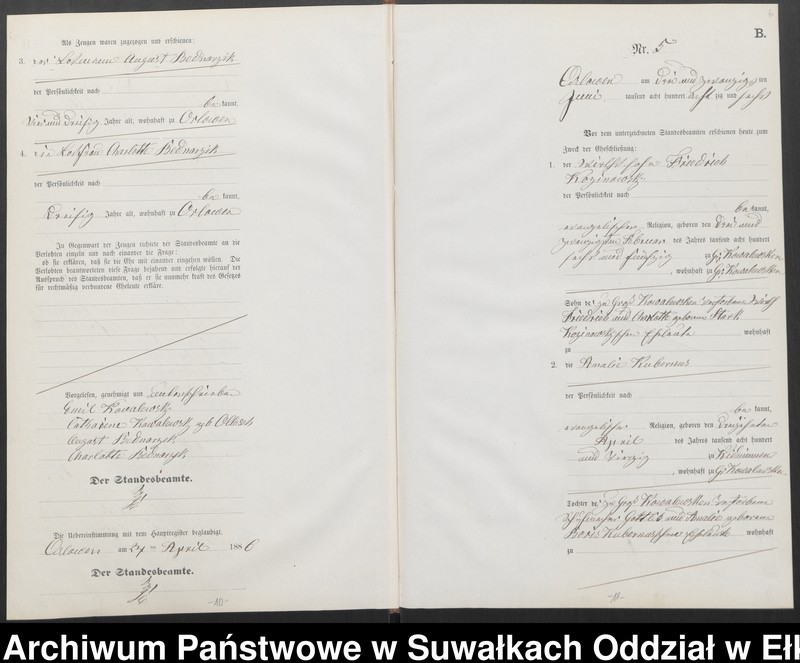 Als Zeugen waren zugezogen und erschienen:
3. der Losmann August Bednarzik
der Persönlichkeit nach
be kannt,
vier und dreißig Jahre alt, wohnhaft zu Orlowen
4. die Losfrau Charlotte Bednarzik
der Persönlichkeit nach
be kannt,
dreißig Jahre alt, wohnhaft zu Orlowen
In Gegenwart der Zeugen richtete der Standesbeamte an die
Verlobten einzeln und nach einander die Frage:
ob sie erklären, daß sie die Ehe mit einander eingehen wollen. Die
Verlobten beantworteten diese Frage bejahend und erfolgte hierauf der
Ausspruch des Standesbeamten, daß er sie nunmehr kraft des Gesetzes
für rechtmäßig verbundene Eheleute erkläre.
Vorgelesen, genehmigt und unterschrieben
Emil Kowalewski
Catharine Kowalewski geb
August Bednarzyk
Charlotte Bednarzyk
Der Standesbeamte.
Die Uebereinstimmung mit dem Hauptregister beglaubigt.
Orlowen am April 1886
Der Standesbeamte.
-10-
B.
Nr. 5
Orlowen am drei und zwanzig ten
Juni tausend acht hundert acht zig und sechs
Vor dem unterzeichneten Standesbeamten erschienen heute zum
Zweck der Eheschließung:
1. der Wirthssohn Friedrich
der Persönlichkeit nach
be kannt,
evangelischer Religion, geboren den drei und
zwanzigsten Februar des Jahres tausend acht hundert
sechs und fünfzig zu Gr. Kowalewsken
, wohnhaft zu Gr. Kowalewsken
Sohn de zu Groß Kowalewsken verstorbenen Wirth
Friedrich und Charlotte geborene
Eheleute wohnhaft
zu
2. die Amalie Kubernus
der Persönlichkeit nach
be kannt,
evangelischer Religion, geboren den dreizehnten
April des Jahres tausend acht hundert
und vierzig zu
, wohnhaft zu Gr. Kowalewsken
Tochter de zu Groß Kowalewsken verstorbenen
Gottlieb und Amalie geborene
Eheleute wohnhaft
zu
-11-
Archiwum Państwowe w Suwałkach Oddział w Ełk